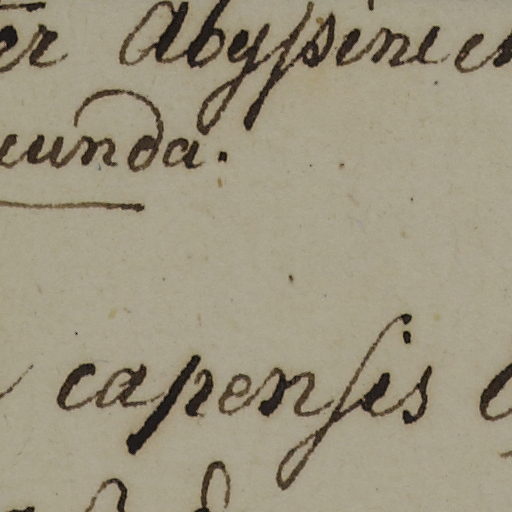 er Abyſsinie
cunda.
capenſis